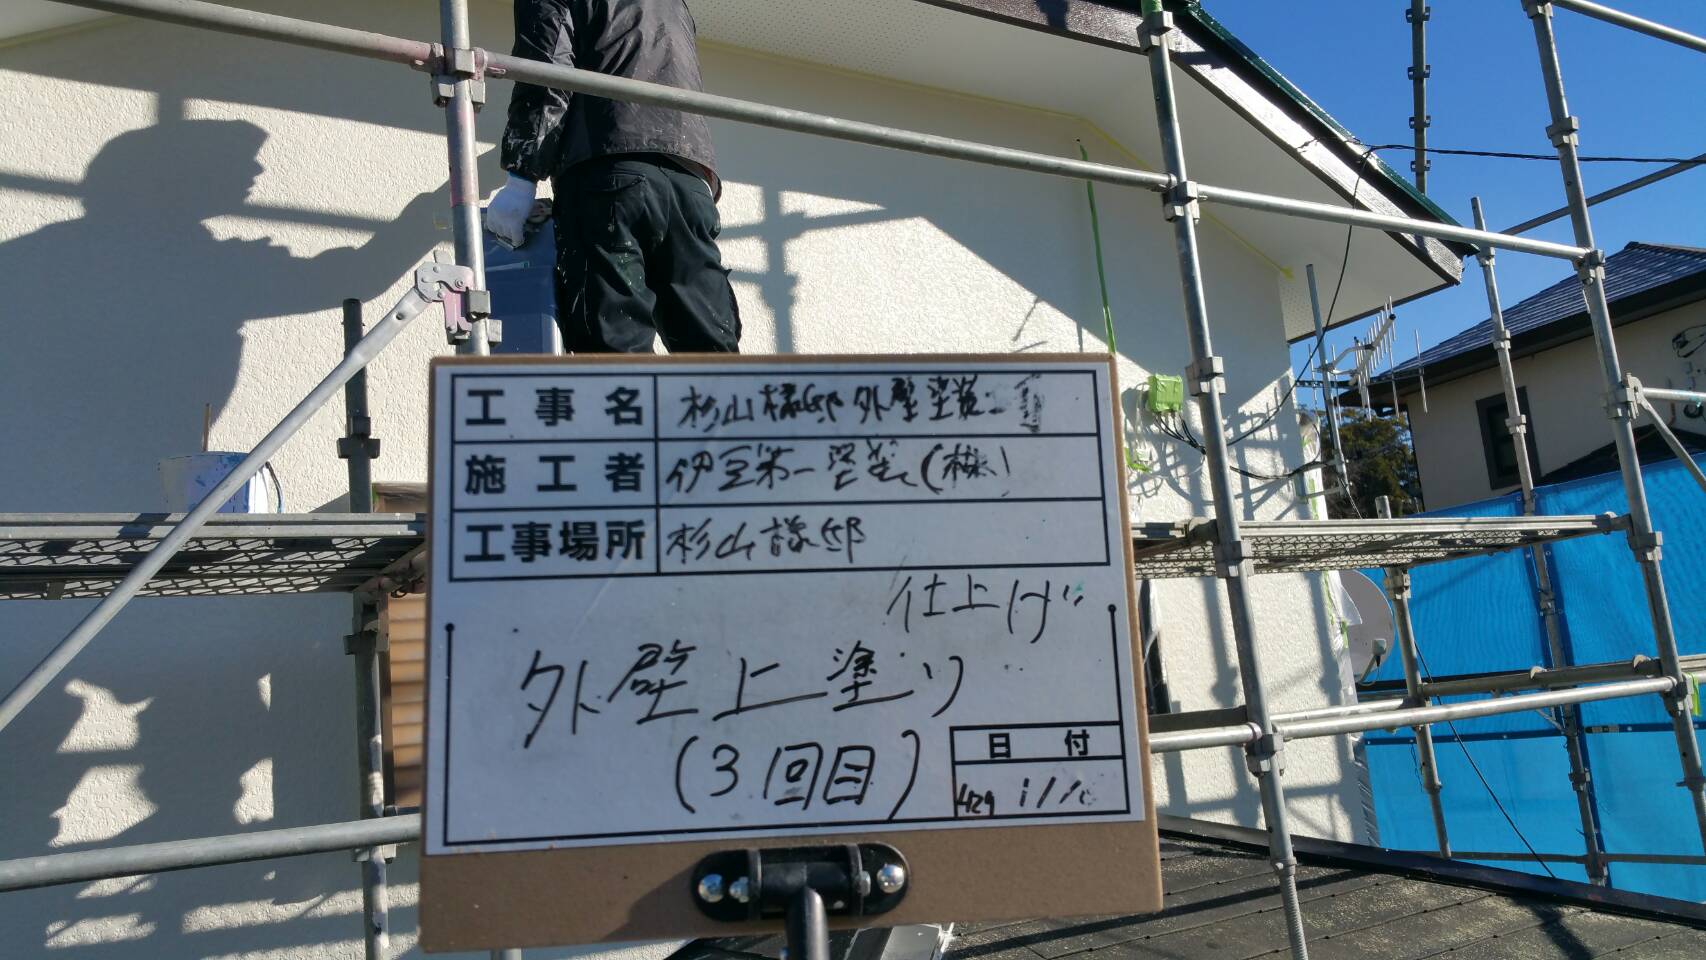 工事名 杉山様邸外壁塗装工事
施工者 伊豆第一塗装(株)
工事場所 杉山様邸
仕上げ
外壁上塗り
(3回目)
日付
H29 1/